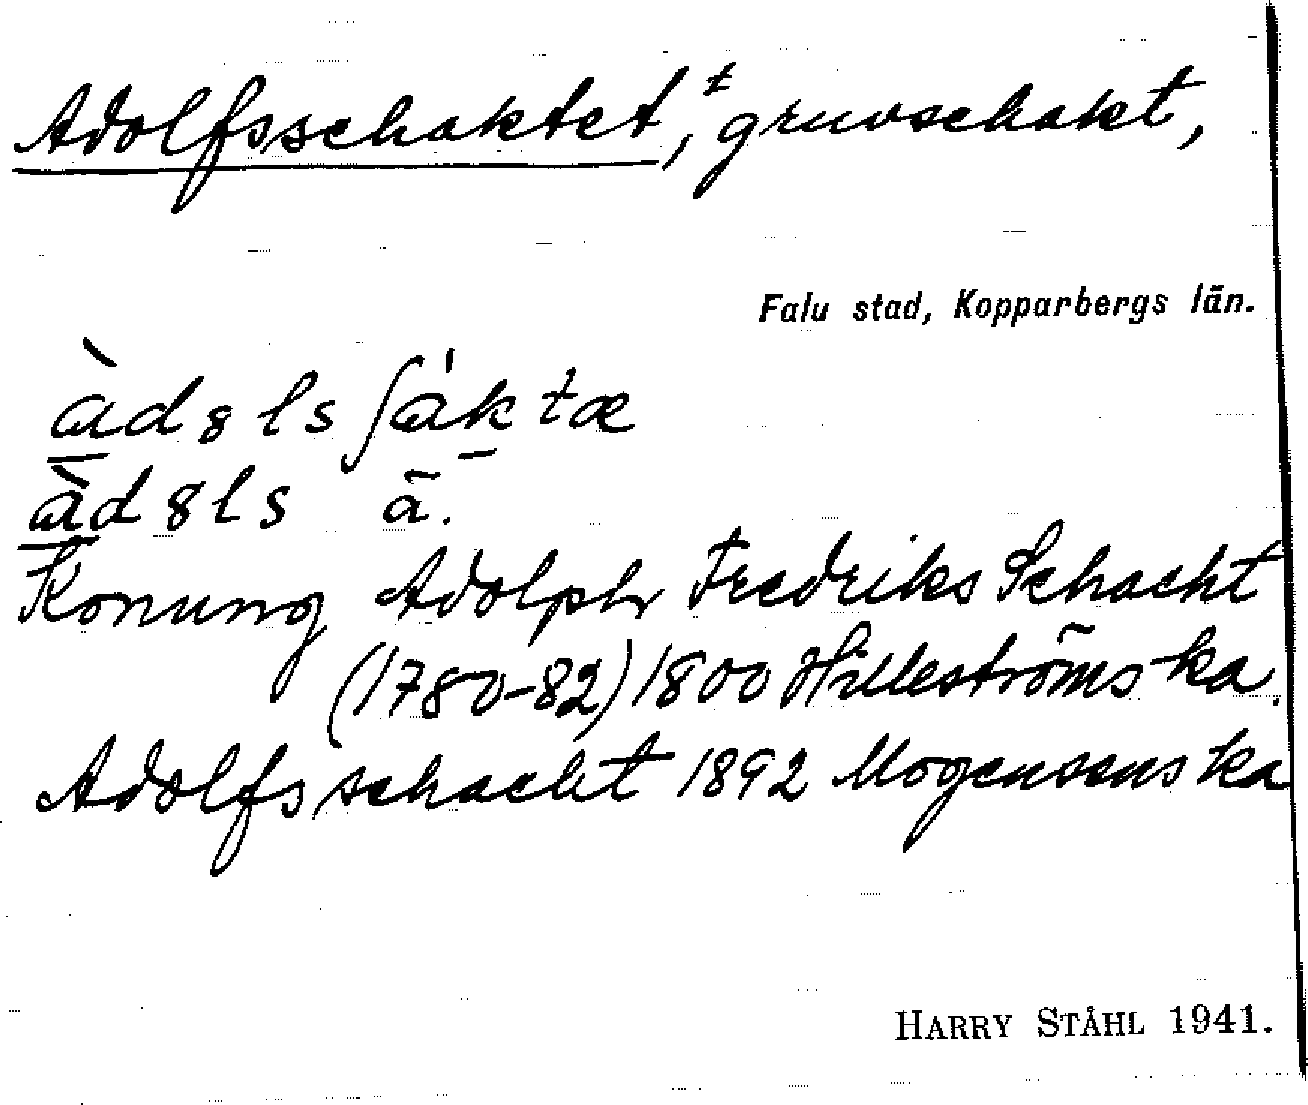 Adolfsschaktet, ‡ gruvschakt,
Falu stad, Kopparbergs län.
àd8lsʃák tæ
àd8ls ā.
Konung Adolph Fredriks Schacht
(1780-82) 1800 Hilleströms ka
Adolfsschacht 1892 Mogensens ka
HARRY STÅHL 1941.